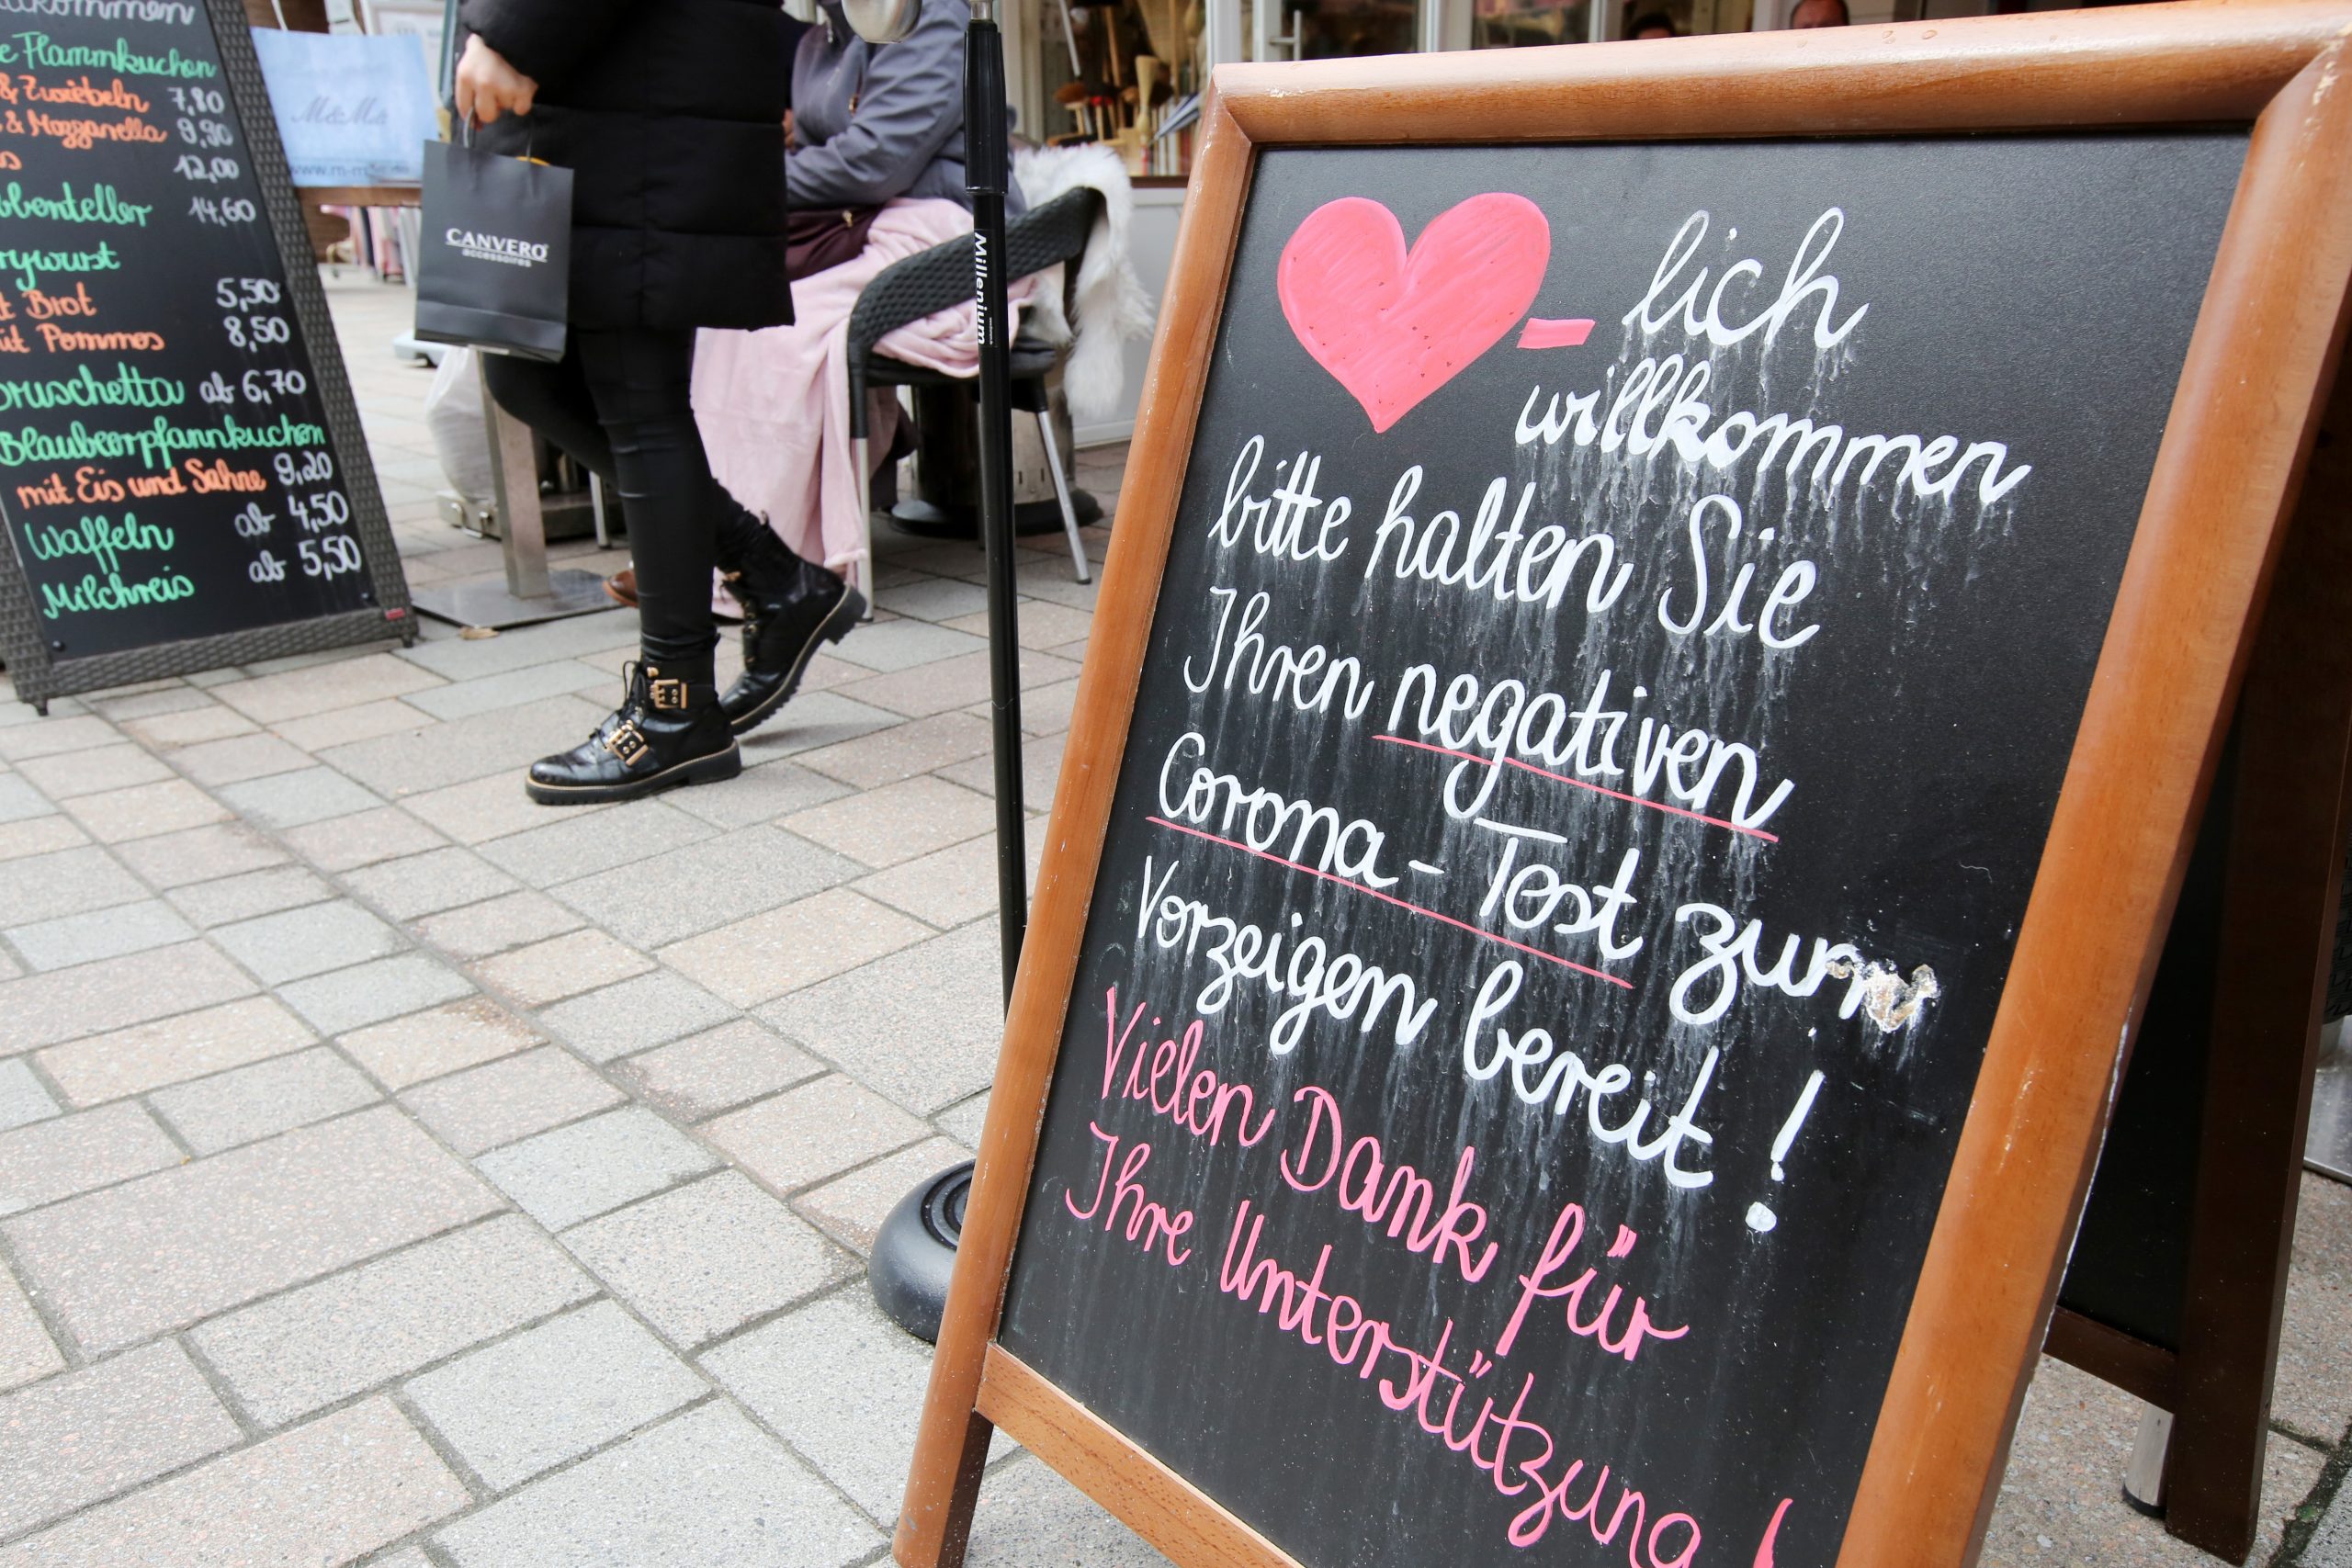 e Flammkuchen
& Zwiebeln 7,80
& Mozzarella 9,90
12,00
14,60
5,50
Brot
mit Pommes 8,50
ab 6,70
Blaubeerpfannkuchen
mit Eis und Sahne 9,20
Waffeln ab 4,50
Milchreis ab 5,50
M&M's
CANVERO
accessoires
Millenium
-lich
willkommen
bitte halten Sie
Ihren negativen
Corona-Test zum
Vorzeigen bereit!
Vielen Dank für
Ihre Unterstützung!